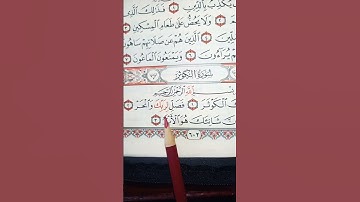 يُكَذِّبُ بِالدِّينِ ١ فَذَٰلِكَ الَّذِي
وَلَا يَحُضُّ عَلَىٰ طَعَامِ الْمِسْكِينِ
الَّذِينَ هُمْ عَن صَلَاتِهِمْ سَاهُونَ
يُرَاءُونَ ٦ وَيَمْنَعُونَ الْمَاعُونَ
سُورَةُ الْكَوْثَرِ
اللَّهِ الرَّحْمَٰنِ الرَّحِيمِ
الْكَوْثَرَ ١ فَصَلِّ لِرَبِّكَ وَانْحَرْ
شَانِئَكَ هُوَ الْأَبْتَرُ ٣
٦٠٢